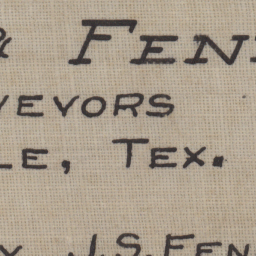 & FEN
VEYORS
LE, TEX.
J.S. FEN